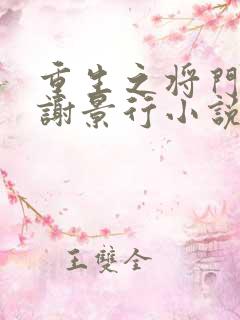 重生之将門
謝景行小説
王雙全